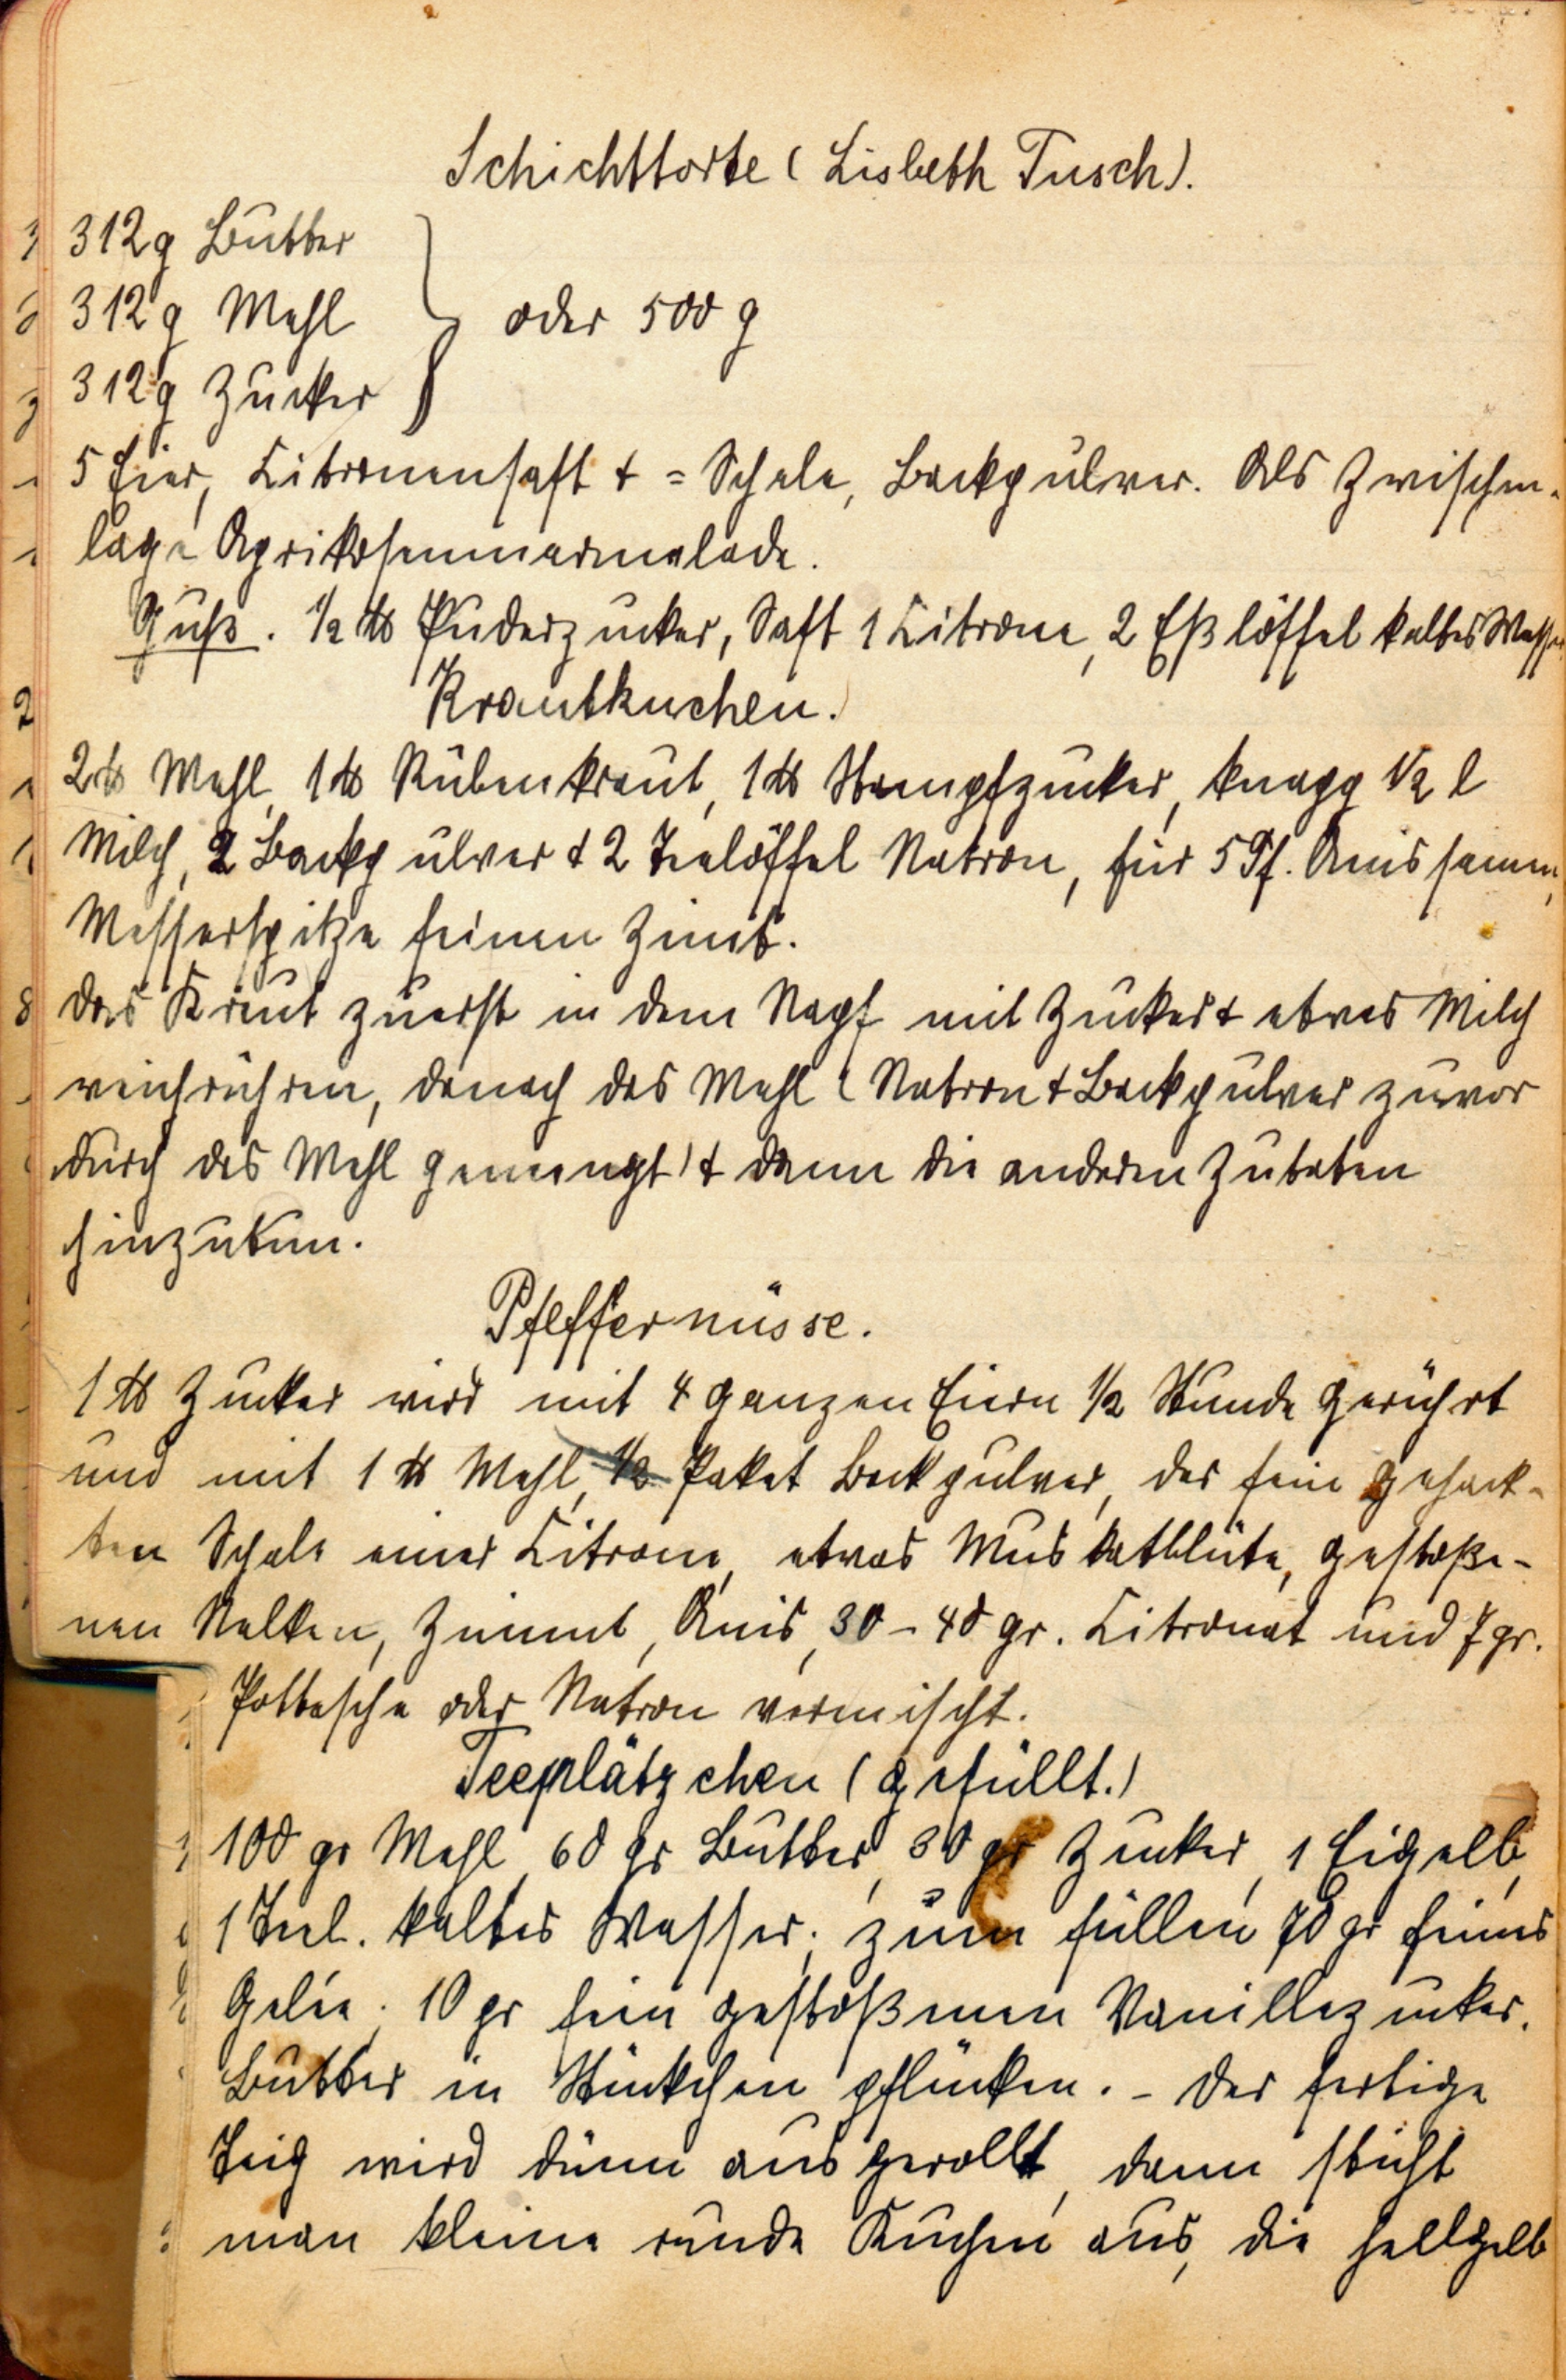 Schichttorte (Lisbeth Tusch).
312g Butter
312g Mehl } oder 500 g
312g Zucker
5 Eier, Citronensaft + = Schale, Backpulver. Als Zwischen-
lage Aprikosenmarmelade.
Guß. 1/2 ℔ Puderzucker, Saft 1 Citrone, 2 Eßlöffel kaltes Wasser
Krautkuchen.
2 ℔ Mehl, 1 ℔ Rübenkraut, 1 ℔ Stampfzucker, knapp 1/2 l
Milch, 2 Backpulver + 2 Teelöffel Natron, für 5 Pf. Anissamen,
Messerspitze feinen Zimt.
Das Kraut zuerst in dem Napf mit Zucker + etwas Milch
weichrühren, danach das Mehl (Natron + Backpulver zuvor
durch das Mehl gemengt) + dann die anderen Zutaten
hinzutun.
Pfeffernüsse.
1 ℔ Zucker wird mit 4 ganzen Eiern 1/2 Stunde gerührt
und mit 1 ℔ Mehl, 1/2 Paket Backpulver, der fein gehack-
ten Schale einer Citrone, etwas Muskatblüte, gestoße-
nen Nelken, Zimmt, Anis, 30 - 40 gr. Citronat und 7 gr.
Pottasche oder Natron vermischt.
Teeplätzchen (gefüllt.)
100 gr Mehl, 60 gr Butter, 30 gr Zucker, 1 Eigelb,
1 Teel. kaltes Wasser; zum füllen 70 gr feines
Gelée; 10 gr fein gestoßenen Vanillezucker.
Butter in Stückchen pflücken. - Der fertige
Teig wird dünn ausgerollt, dann sticht
man kleine runde Kuchen aus, die hellgelb